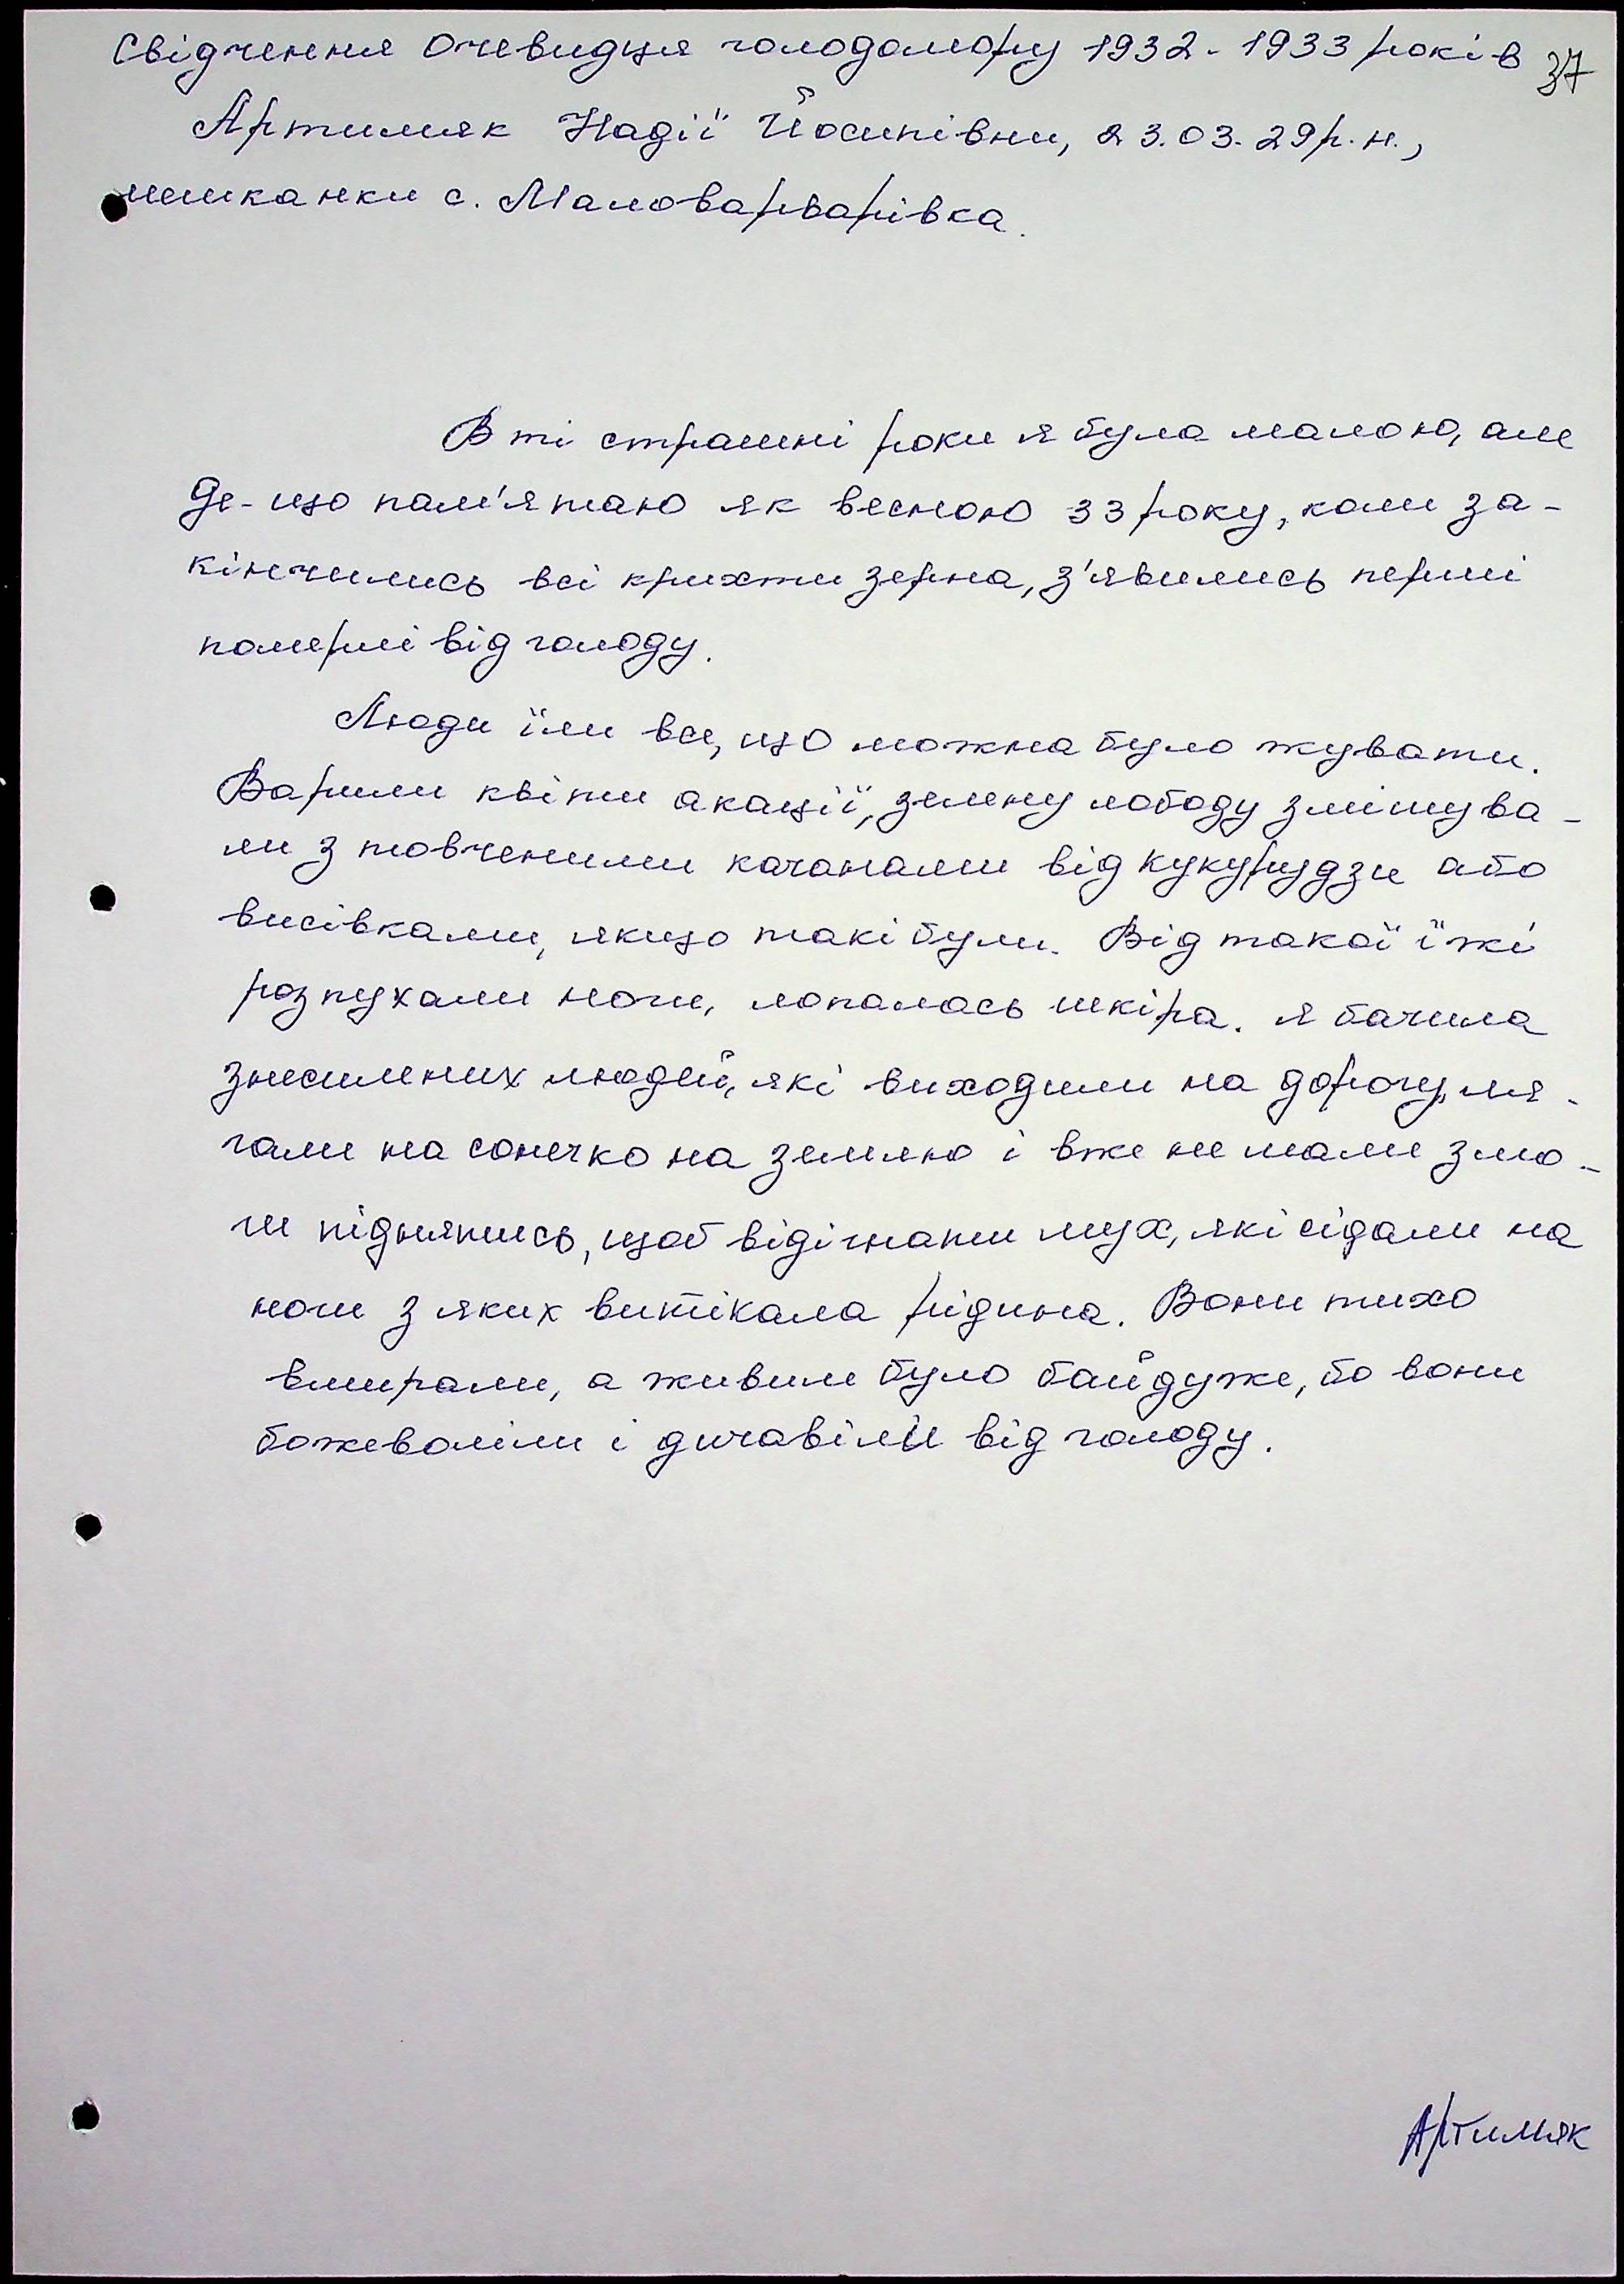 Свідчення очевидця голодомору 1932-1933 років
37
Артимяк Надії Йосипівни, 23.03.29р.н.,
мешканки с. Маловарварівка.
В ті страшні роки я була малою, але
де-що пам'ятаю як весною 33 року, коли за-
кінчились всі крихти зерна, з'явились перші
померлі від голоду.
Люди їли все, що можна було жувати.
Варили квіти акації, зелену лободу змішува-
ли з товченими качанами від кукурудзи або
висівками, якщо такі були. Від такої їжі
розпухали ноги, лопалась шкіра. я бачила
знесилених людей, які виходили на дорогу, ля-
гали на сонечко на землю і вже не мали змо-
ги піднятись, щоб відігнати мух, які сідали на
ноги з яких витікала рідина. Вони тихо
вмирали, а живим було байдуже, бо вони
божеволіли і дичавіли від голоду.
Артимяк